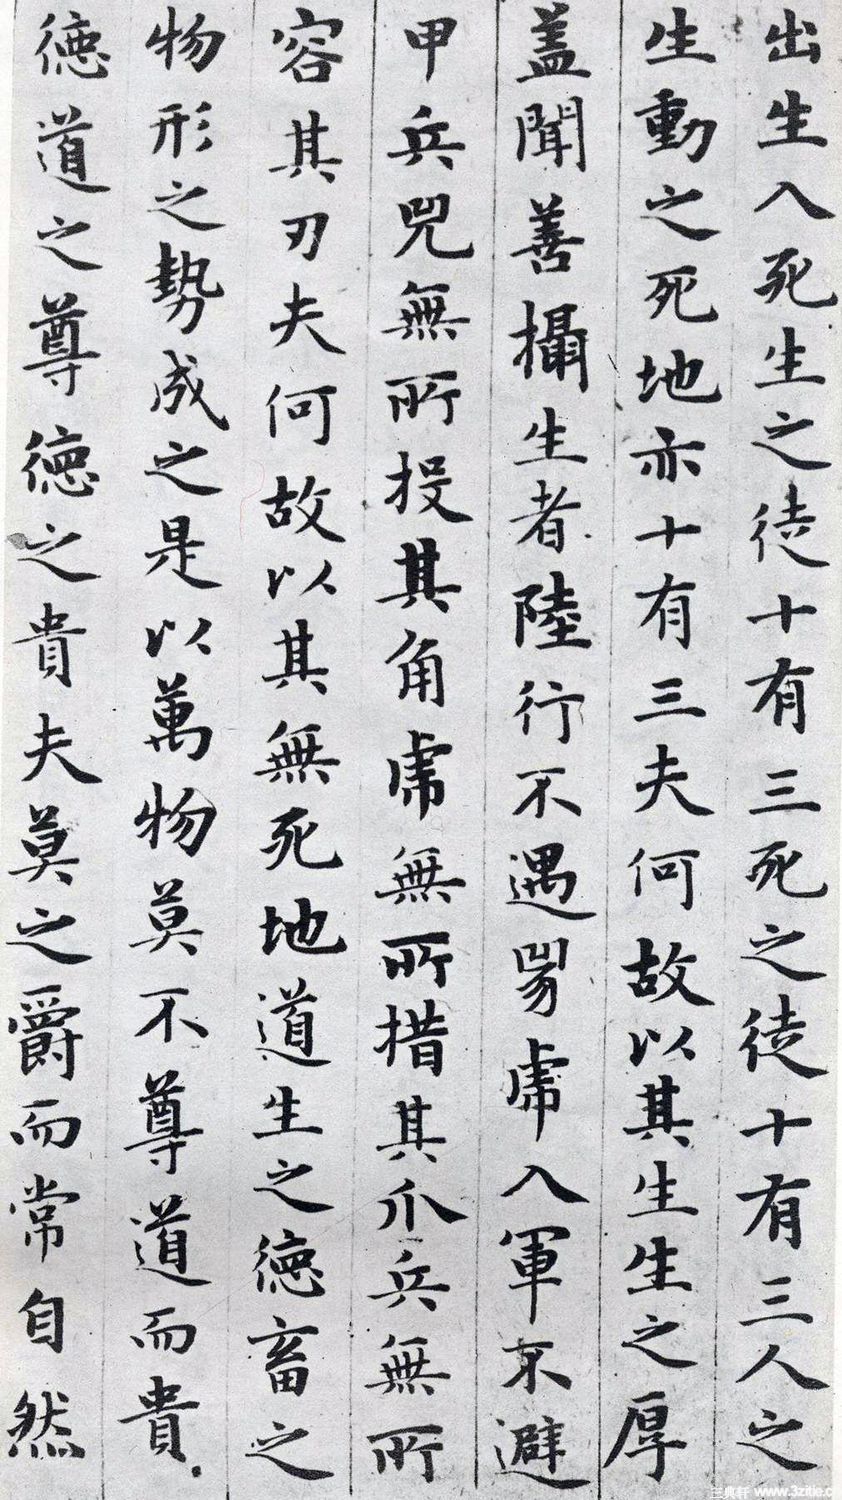 出生入死生之徒十有三死之徒十有三人之
生動之死地亦十有三夫何故以其生生之厚
盖聞善攝生者陸行不遇兕虎入軍不避
甲兵兕無所投其角虎無所措其爪兵無所
容其刃夫何故以其無死地道生之德畜之
物形之勢成之是以萬物莫不尊道而貴
德道之尊德之貴夫莫之爵而常自然
三典轩 www.3zitie.c